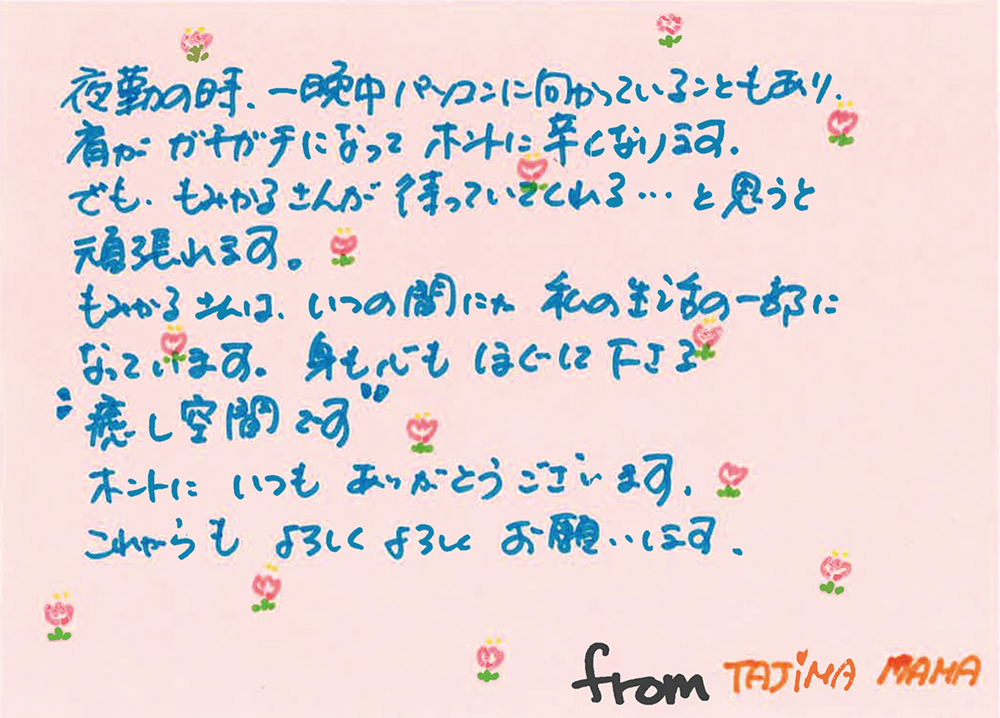 夜勤の時、一晩中パソコンに向かっていることもあり、
肩がガチガチになってホントに辛くなります。
でも、もみかるさんが待っていてくれる…と思うと
頑張れます。
もみかるさんは、いつの間にか私の生活の一部に
なっています。身も心もほぐして下さる
“癒し空間です”
ホントにいつもありがとうございます。
これからもよろしくよろしくお願いします。
from TAJiMA MAMA